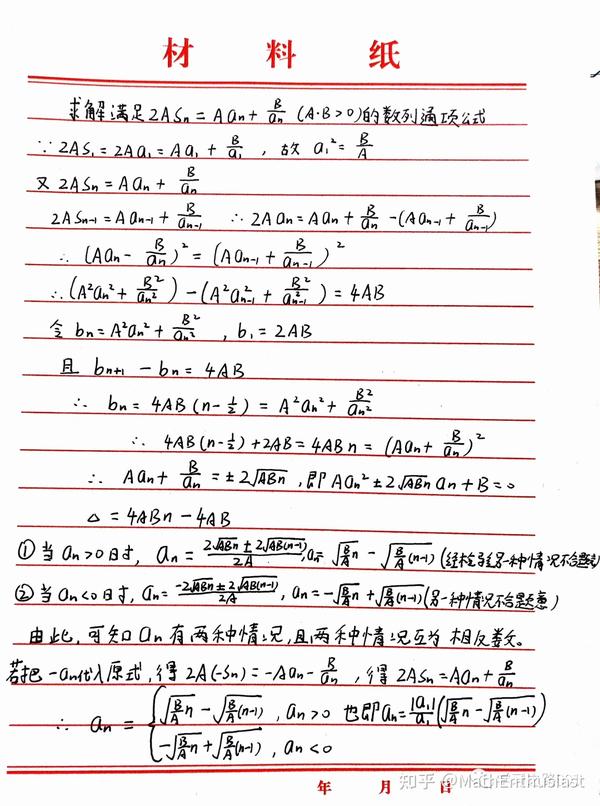 材 料 纸
求解满足2ASn=Aan+B/an (A·B>0)的数列通项公式
∵2AS₁=2Aa₁=Aa₁+B/a₁，故 a₁²=B/A
又2ASn=Aan+B/an
2ASn-1=Aan-1+B/an-1 ∴2Aan=Aan+B/an-(Aan-1+B/an-1)
∴(Aan-B/an)²=(Aan-1+B/an-1)²
∴(A²an²+B²/an²)-(A²a²n-1+B²/a²n-1)=4AB
令bn=A²an²+B²/an²，b₁=2AB
且 bn+1-bn=4AB
∴ bn=4AB(n-1/2)=A²an²+B²/an²
∴ 4AB(n-1/2)+2AB=4ABn=(Aan+B/an)²
∴ Aan+B/an=±2√ABn，即Aan²±2√ABn an+B=0
△=4ABn-4AB
①当an>0时，an=2√ABn±2√AB(n-1)/2A,an=√B/A n-√B/A(n-1)(经检验另一种情况不合题意)
②当an<0时，an=-2√ABn±2√AB(n-1)/2A，an=-√B/A n+√B/A(n-1)(另一种情况不合题意)
由此，可知an有两种情况，且两种情况互为相反数。
若把-an代入原式，得2A(-Sn)=-Aan-B/an，得2ASn=Aan+B/an
∴ an={√B/A n-√B/A(n-1)，an>0 也即an=|a₁|/a₁(√B/A n-√B/A(n-1))
-√B/A n+√B/A(n-1)，an<0
年 月 日
知乎 @MathEnthusiast